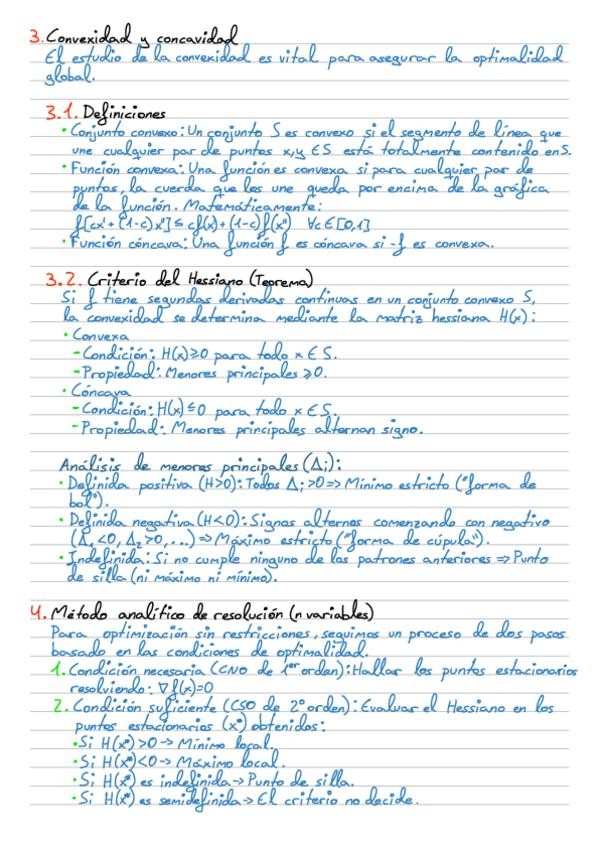 3. Convexidad y concavidad
El estudio de la convexidad es vital para asegurar la optimalidad
global.
3.1. Definiciones
• Conjunto convexo: Un conjunto S es convexo si el segmento de línea que
une cualquier par de puntos x,y ∈ S está totalmente contenido en S.
• Función convexa: Una función es convexa si para cualquier par de
puntos, la cuerda que los une queda por encima de la gráfica
de la función. Matemáticamente:
f[cx' + (1-c)x''] ≤ cf(x) + (1-c)f(x'') ∀c ∈ [0,1]
• Función cóncava: Una función f es cóncava si -f es convexa.
3.2. Criterio del Hessiano (Teorema)
Si f tiene segundas derivadas continuas en un conjunto convexo S,
la convexidad se determina mediante la matriz hessiana H(x):
• Convexa
- Condición: H(x) ≥ 0 para todo x ∈ S.
- Propiedad: Menores principales ≥ 0.
• Cóncava
- Condición: H(x) ≤ 0 para todo x ∈ S.
- Propiedad: Menores principales alternan signo.
Análisis de menores principales (Δi):
• Definida positiva (H>0): Todos Δi >0 => Mínimo estricto ("forma de
bol").
• Definida negativa (H<0): Signos alternos comenzando con negativo
(Δ1 <0, Δ2 >0, ...) => Máximo estricto ("forma de cúpula").
• Indefinida: Si no cumple ninguno de los patrones anteriores => Punto
de silla (ni máximo ni mínimo).
4. Método analítico de resolución (n variables)
Para optimización sin restricciones, seguimos un proceso de dos pasos
basado en las condiciones de optimalidad.
1. Condición necesaria (CNO de 1er orden): Hallar los puntos estacionarios
resolviendo: ∇f(x)=0
2. Condición suficiente (CSO de 2º orden): Evaluar el Hessiano en los
puntos estacionarios (x*) obtenidos:
• Si H(x*) >0 -> Mínimo local.
• Si H(x*) <0 -> Máximo local.
• Si H(x*) es indefinida -> Punto de silla.
• Si H(x*) es semidefinida -> El criterio no decide.